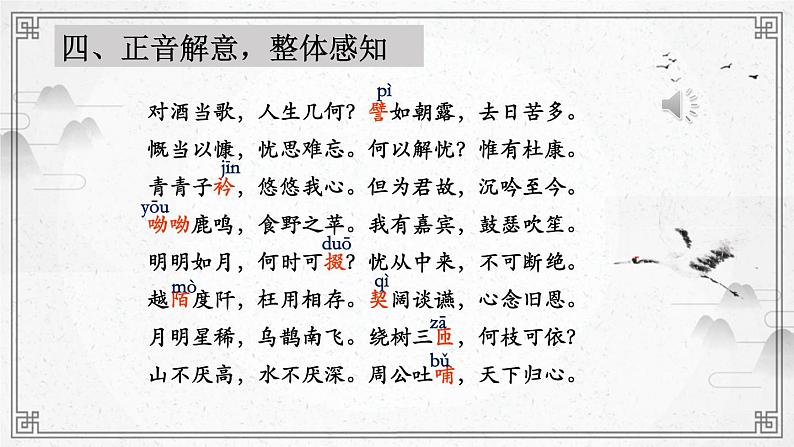 四、正音解意，整体感知
pì
对酒当歌，人生几何？譬如朝露，去日苦多。
慨当以慷，忧思难忘。何以解忧？惟有杜康。
jīn
青青子衿，悠悠我心。但为君故，沉吟至今。
yōu
呦呦鹿鸣，食野之苹。我有嘉宾，鼓瑟吹笙。
duō
明明如月，何时可掇？忧从中来，不可断绝。
mò qì
越陌度阡，枉用相存。契阔谈讌，心念旧恩。
zā
月明星稀，乌鹊南飞。绕树三匝，何枝可依？
bǔ
山不厌高，水不厌深。周公吐哺，天下归心。